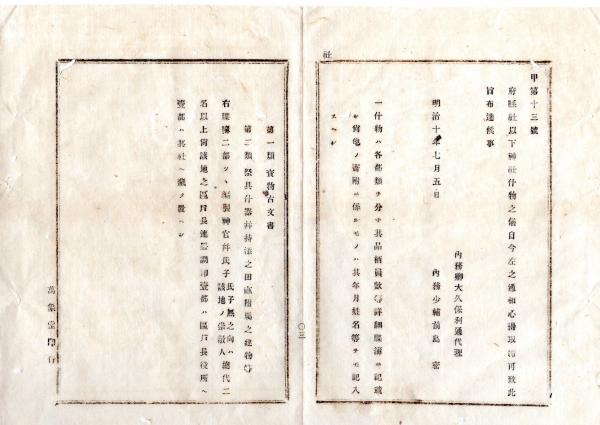 社
甲第十三號
府縣社以下神社什物之儀自今左之通相心得取締可致此
旨布達候事
明治十年七月五日
內務卿大久保利通代理
內務少輔前島 密
一什物ハ各部類ヲ分チ其品柄員數等詳細牒簿ヲ記載
シ寄附ニ係ルモノハ其年月姓名等ヲモ記入
スヘシ
第一類 寳物古文書
第二類 祭具什器幷持添之田畝附屬之建物等
右牒簿二部ツヽ編製神官幷氏子 氏子無之向ハ該地ノ崇敬人 總代二
名以上尙該地之區戶長連署調印壹部ハ區戶長役所ヘ
壹部ハ其社ヘ藏メ置ヘシ
〇三
萬象堂印行